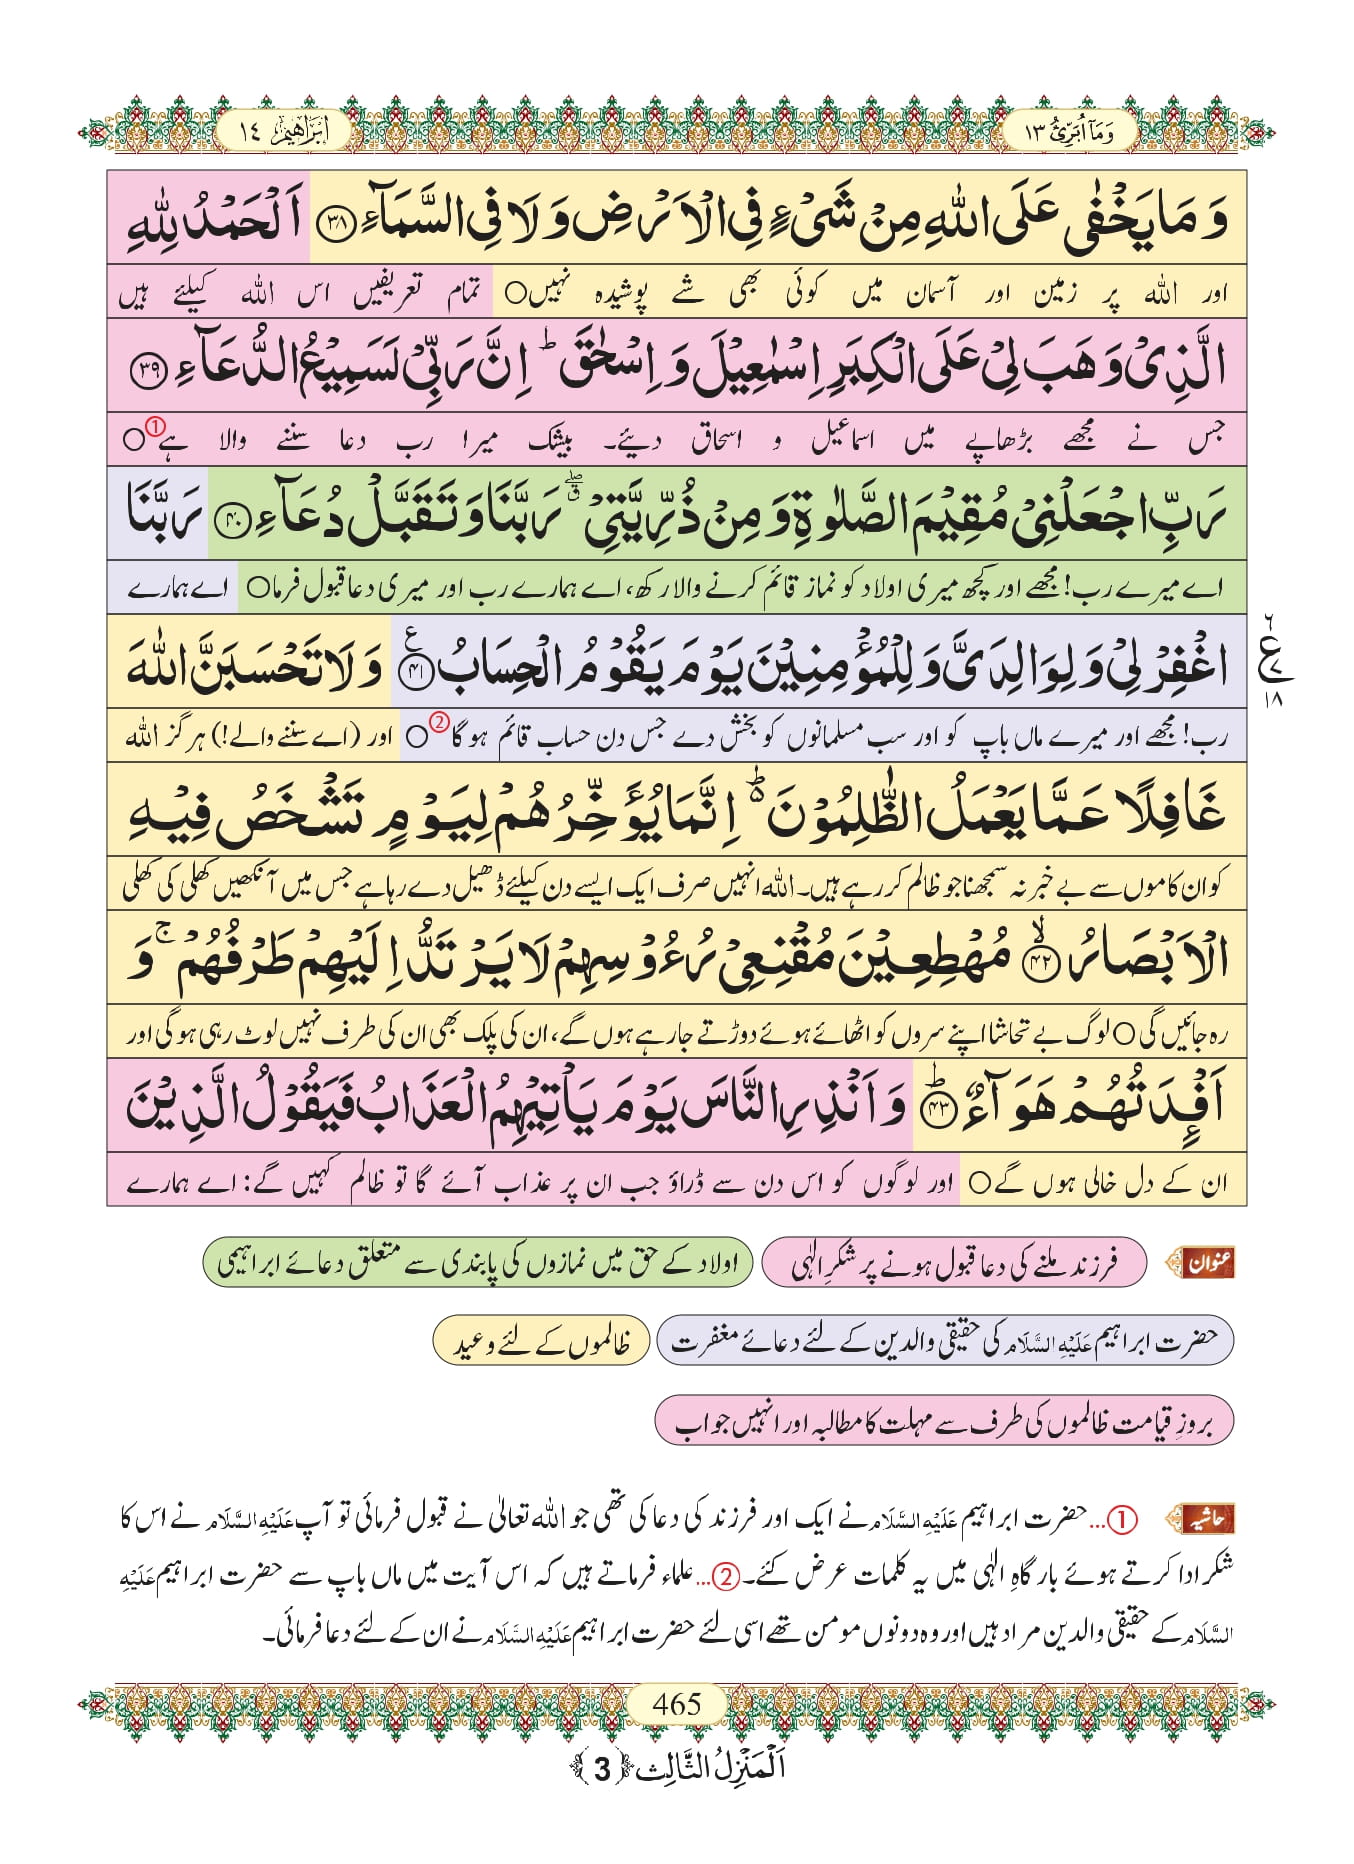 وَمَاۤ اُبَرِّئُ ١٣
اِبْرٰهِيْم ١٤
وَ مَا یَخْفٰى عَلَى اللّٰهِ مِنْ شَیْءٍ فِی الْاَرْضِ وَ لَا فِی السَّمَآءِ ﴿۳۸﴾ اَلْحَمْدُ لِلّٰهِ
اور اللہ پر زمین اور آسمان میں کوئی بھی شے پوشیدہ نہیں○ تمام تعریفیں اس اللہ کیلئے ہیں
الَّذِیْ وَهَبَ لِیْ عَلَى الْكِبَرِ اِسْمٰعِیْلَ وَ اِسْحٰقَ ؕ اِنَّ رَبِّیْ لَسَمِیْعُ الدُّعَآءِ ﴿۳۹﴾
جس نے مجھے بڑھاپے میں اسماعیل و اسحاق دیئے۔ بیشک میرا رب دعا سننے والا ہے① ○
رَبِّ اجْعَلْنِیْ مُقِیْمَ الصَّلٰوةِ وَ مِنْ ذُرِّیَّتِیْ ۖۗ رَبَّنَا وَ تَقَبَّلْ دُعَآءِ ﴿۴۰﴾ رَبَّنَا
اے میرے رب! مجھے اور کچھ میری اولاد کو نماز قائم کرنے والا رکھ، اے ہمارے رب اور میری دعا قبول فرما○ اے ہمارے
اغْفِرْ لِیْ وَ لِوَالِدَیَّ وَ لِلْمُؤْمِنِیْنَ یَوْمَ یَقُوْمُ الْحِسَابُ ﴿۴۱﴾ ع وَ لَا تَحْسَبَنَّ اللّٰهَ
٦ ع ٧ ١٨
رب! مجھے اور میرے ماں باپ کو اور سب مسلمانوں کو بخش دے جس دن حساب قائم ہوگا② ○ اور (اے سننے والے!) ہرگز اللہ
غَافِلًا عَمَّا یَعْمَلُ الظّٰلِمُوْنَ ؕ۬ اِنَّمَا یُؤَخِّرُهُمْ لِیَوْمٍ تَشْخَصُ فِیْهِ
کو ان کاموں سے بے خبر نہ سمجھنا جو ظالم کر رہے ہیں۔ اللہ انہیں صرف ایک ایسے دن کیلئے ڈھیل دے رہا ہے جس میں آنکھیں کھلی کی کھلی
الْاَبْصَارُ ﴿ۙ۴۲﴾ مُهْطِعِیْنَ مُقْنِعِیْ رُءُوْسِهِمْ لَا یَرْتَدُّ اِلَیْهِمْ طَرْفُهُمْ ۚ وَ
رہ جائیں گی○ لوگ بے تحاشا اپنے سروں کو اٹھائے ہوئے دوڑتے جا رہے ہوں گے، ان کی پلک بھی ان کی طرف نہیں لوٹ رہی ہوگی اور
اَفْـِٕدَتُهُمْ هَوَآءٌ ﴿ؕ۴۳﴾ وَ اَنْذِرِ النَّاسَ یَوْمَ یَاْتِیْهِمُ الْعَذَابُ فَیَقُوْلُ الَّذِیْنَ
ان کے دل خالی ہوں گے○ اور لوگوں کو اس دن سے ڈراؤ جب ان پر عذاب آئے گا تو ظالم کہیں گے: اے ہمارے
عنوان فرزند ملنے کی دعا قبول ہونے پر شکرِ الٰہی اولاد کے حق میں نمازوں کی پابندی سے متعلق دعائے ابراہیمی
حضرت ابراہیم عَلَیْهِ السَّلَام کی حقیقی والدین کے لئے دعائے مغفرت ظالموں کے لئے وعید
بروزِ قیامت ظالموں کی طرف سے مہلت کا مطالبہ اور انہیں جواب
حاشیہ ①...حضرت ابراہیم عَلَیْهِ السَّلَام نے ایک اور فرزند کی دعا کی تھی جو اللہ تعالیٰ نے قبول فرمائی تو آپ عَلَیْهِ السَّلَام نے اس کا
شکر ادا کرتے ہوئے بارگاہِ الٰہی میں یہ کلمات عرض کئے۔ ②...علماء فرماتے ہیں کہ اس آیت میں ماں باپ سے حضرت ابراہیم عَلَیْهِ
السَّلَام کے حقیقی والدین مراد ہیں اور وہ دونوں مومن تھے اسی لئے حضرت ابراہیم عَلَیْهِ السَّلَام نے ان کے لئے دعا فرمائی۔
465
اَلْمَنْزِلُ الثَّالِث ﴿3﴾